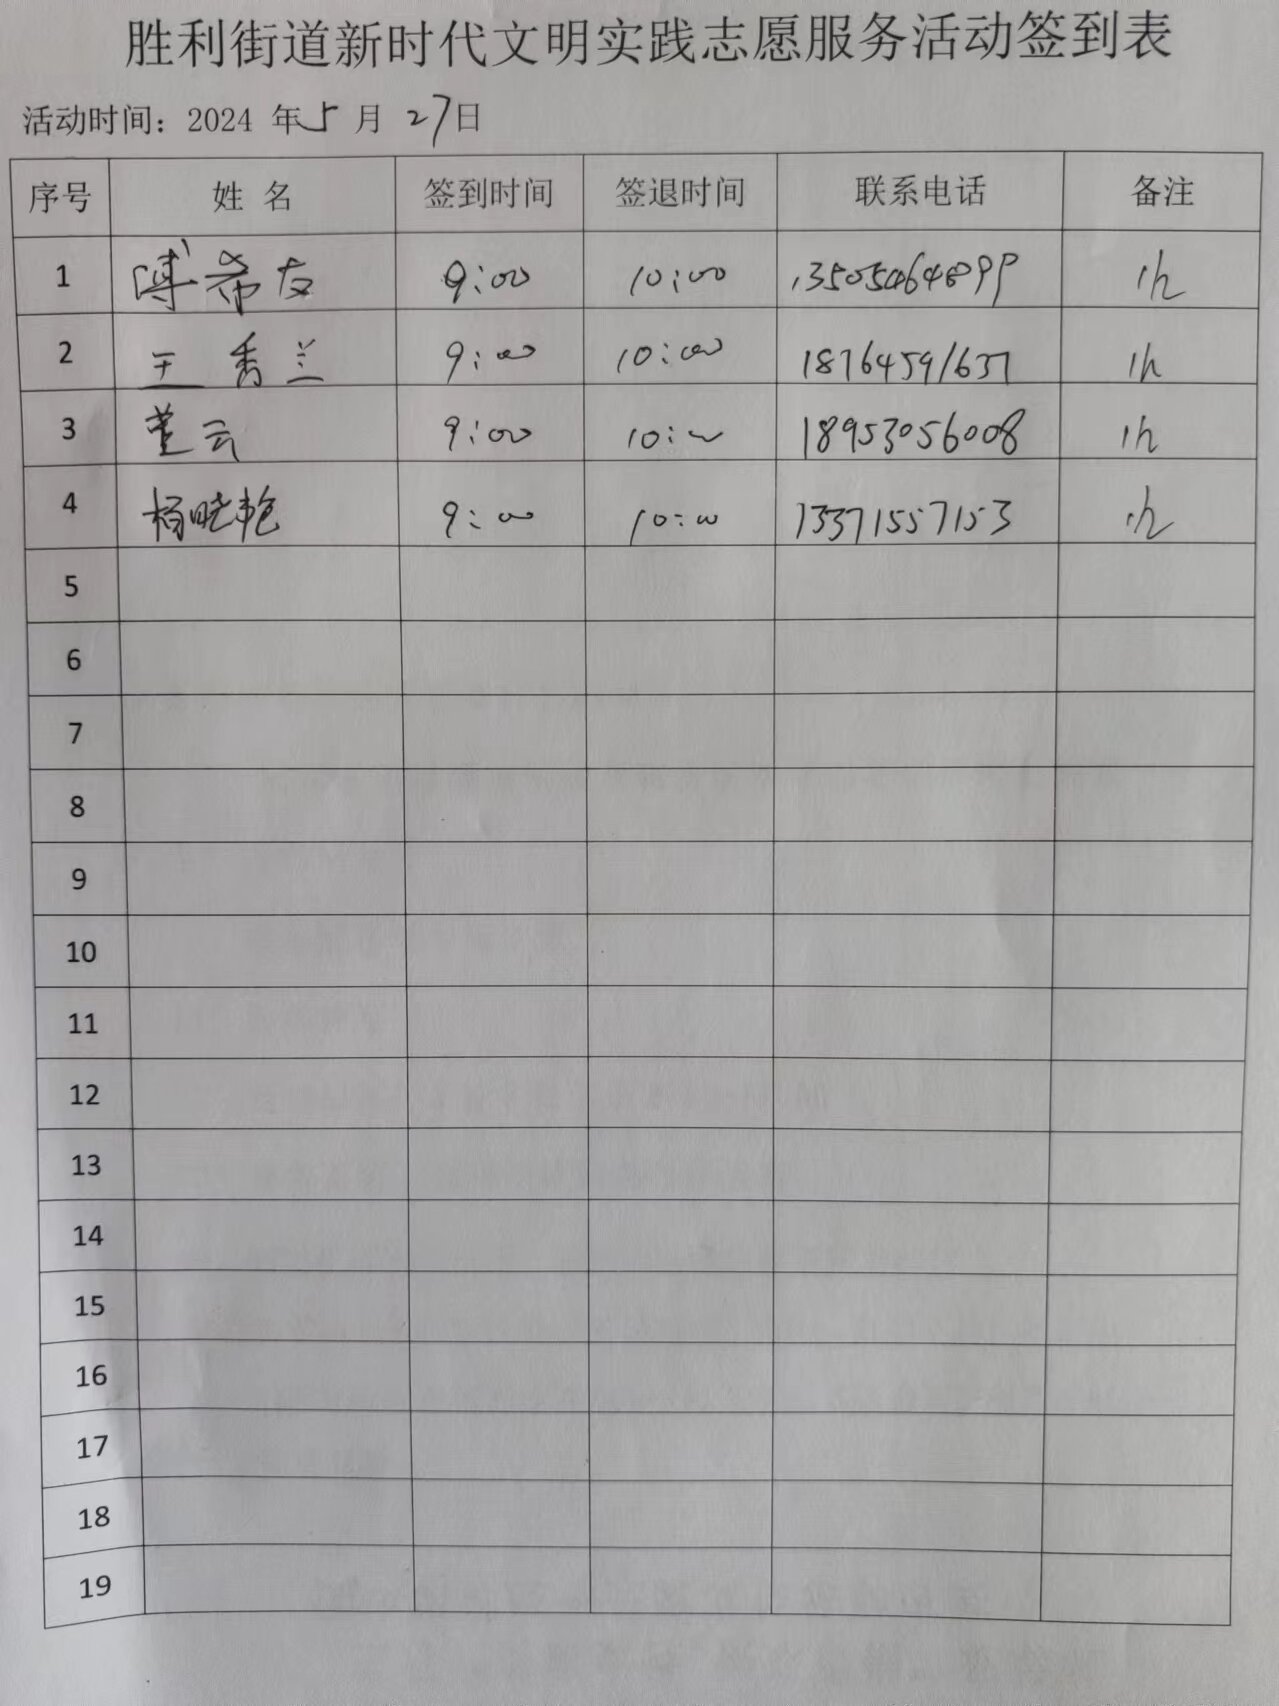 胜利街道新时代文明实践志愿服务活动签到表
活动时间：2024 年 5 月 27日
序号 姓 名 签到时间 签退时间 联系电话 备注
1 傅希友 9:00 10:00 13505464899 1h
2 王秀兰 9:00 10:00 18764591637 1h
3 董云 9:00 10:00 18953056008 1h
4 杨晓艳 9:00 10:00 13371557153 1h
5
6
7
8
9
10
11
12
13
14
15
16
17
18
19